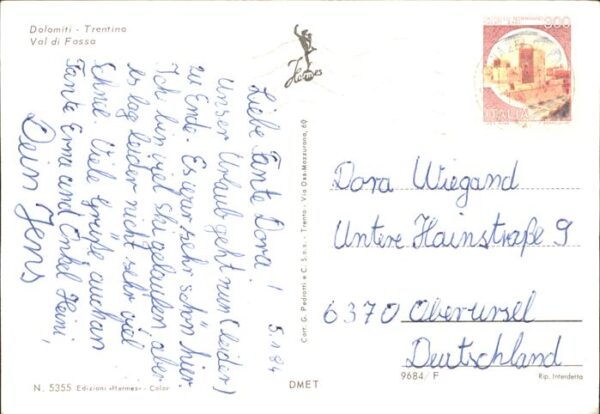 Dolomiti - Trentino
Val di Fassa
Hermes
800
ITALIA
Liebe Tante Dora! 5.1.84
Unser Urlaub geht nun (leider)
zu Ende. Es war sehr schön hier.
Ich bin viel Ski gelaufen, aber
es lag leider nicht sehr viel
Schnee. Viele Grüße auch an
Tante Erna und Onkel Heini,
Dein Jens
Cart. G. Pedrotti e C. S.a.s. - Trento - Via Oss. Mazzurana, 69
Dora Wiegand
Untere Hainstraße 9
6370 Oberursel
Deutschland
N. 5355 Edizioni «Hermes» - Color
DMET
9684/F
Rip. Interdetta